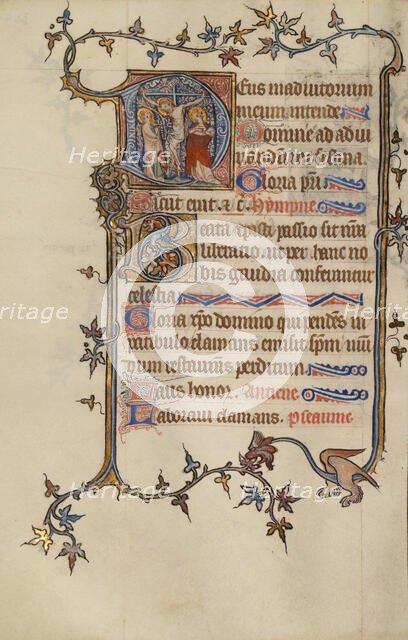 Deus in adiutorium
meum intende
Domine ad adiu
Gloria pri
Sicut erat. & c. Hympne
Beata xpisti passio sit nra
liberatio. ut per hanc no
bis gaudia conferantur
celestia
Gloria xpo domino qui pendens in
patibulo clamans emisit spm mun
dum restaurans perditum
Laus honor. Antiene
Laboraui clamans. Pseaume
Heritage
Heritage
Heritage
Heritage
Heritage
Heritage